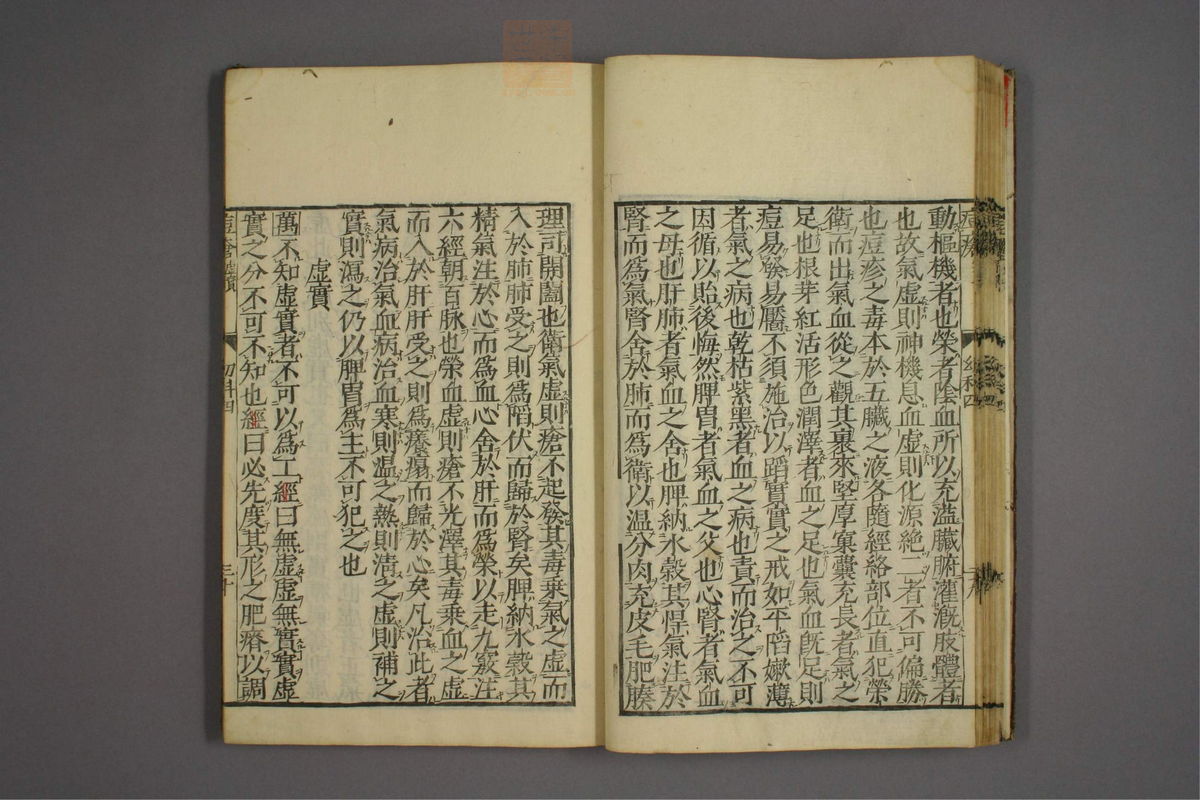 動樞機者也榮者陰血所以充溢臟腑灌漑肢體者
也故氣虛則神機息血虛則化源絶二者不可偏勝
也痘疹之毒本於五臟之液各隨經絡部位直犯榮
衛而出氣血從之觀其裹來堅厚窠囊充長者氣之
足也根芽紅活形色潤澤者血之足也氣血既足則
痘易發易靨不須施治以蹈實實之戒如平䧟嫩薄
者氣之病也乾枯紫黑者血之病也責而治之不可
因循以貽後悔然脾胃者氣血之父也心腎者氣血
之母也肝肺者氣血之舍也脾納水穀其悍氣注於
腎而爲氣腎舍於肺而爲衛以温分肉充皮毛肥腠
理司開闔也衛氣虛則瘡不起發其毒乘氣之虛而
入於肺肺受之則爲䧟伏而歸於腎矣脾納水穀其
精氣注於心而爲血心舍於肝而爲榮以走九竅注
六經朝百脉也榮血虛則瘡不光澤其毒乘血之虛
而入於肝肝受之則爲癢塌而歸於心矣凡治此者
氣病治氣血病治血寒則温之熱則清之虛則補之
實則瀉之仍以脾胃爲主不可犯之也
虛實
萬不知虛實者不可以爲工經曰無虛虛無實實虛
實之分不可不知也經曰必先度其形之肥瘠以調